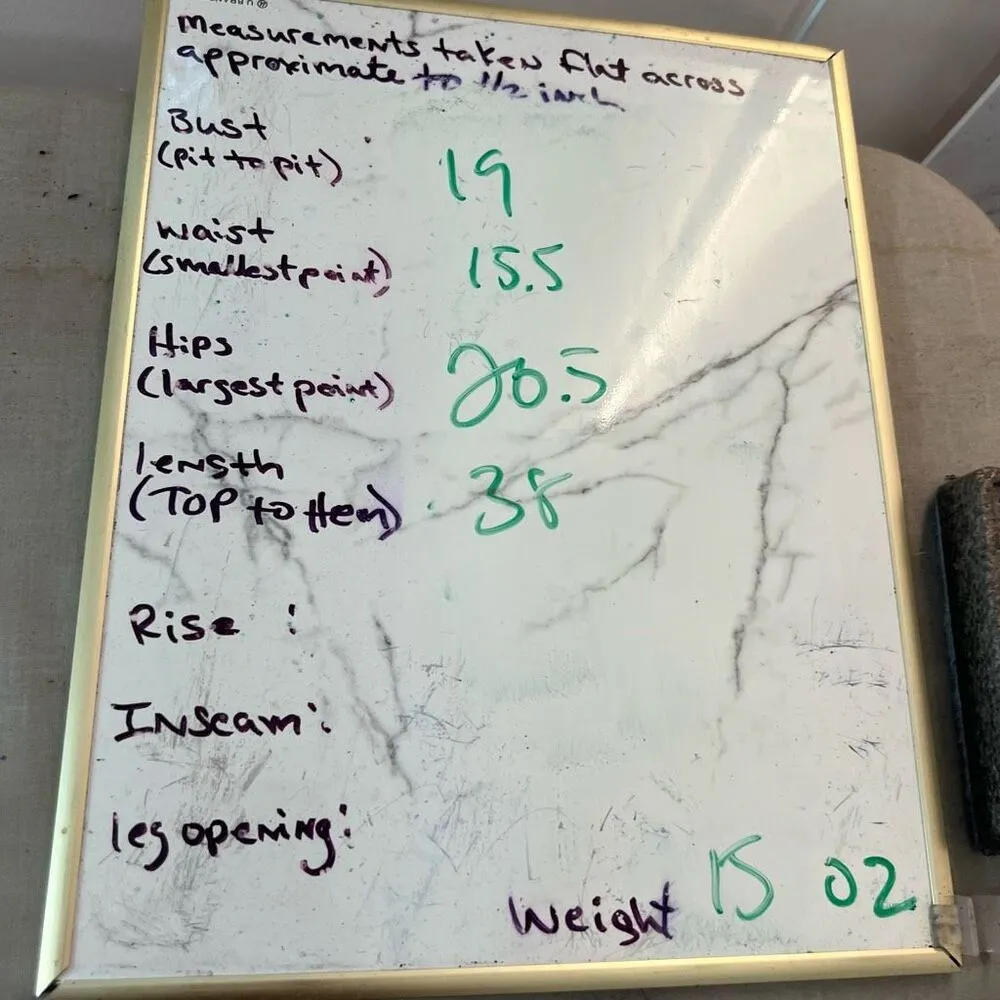 Measurements taken flat across
approximate to 1/2 inch
Bust
(pit to pit) 19
waist
(smallest point) 15.5
Hips
(largest point) 20.5
length
(TOP to Hem) 38
Rise :
Inseam:
leg opening:
Weight 15 OZ